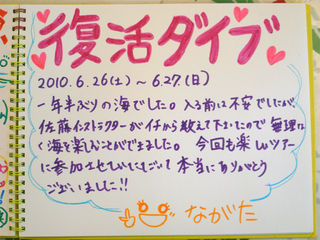 復活ダイブ
2010.6.26(土)～6.27.(日)
一年半ぶりの海でした。入る前は不安でしたが、
佐藤インストラクターがイチから教えて下さったので無理な
く海を楽しむことができました。今回も楽しいツアー
に参加させていただいて本当にありがとう
ございました!!
ながた